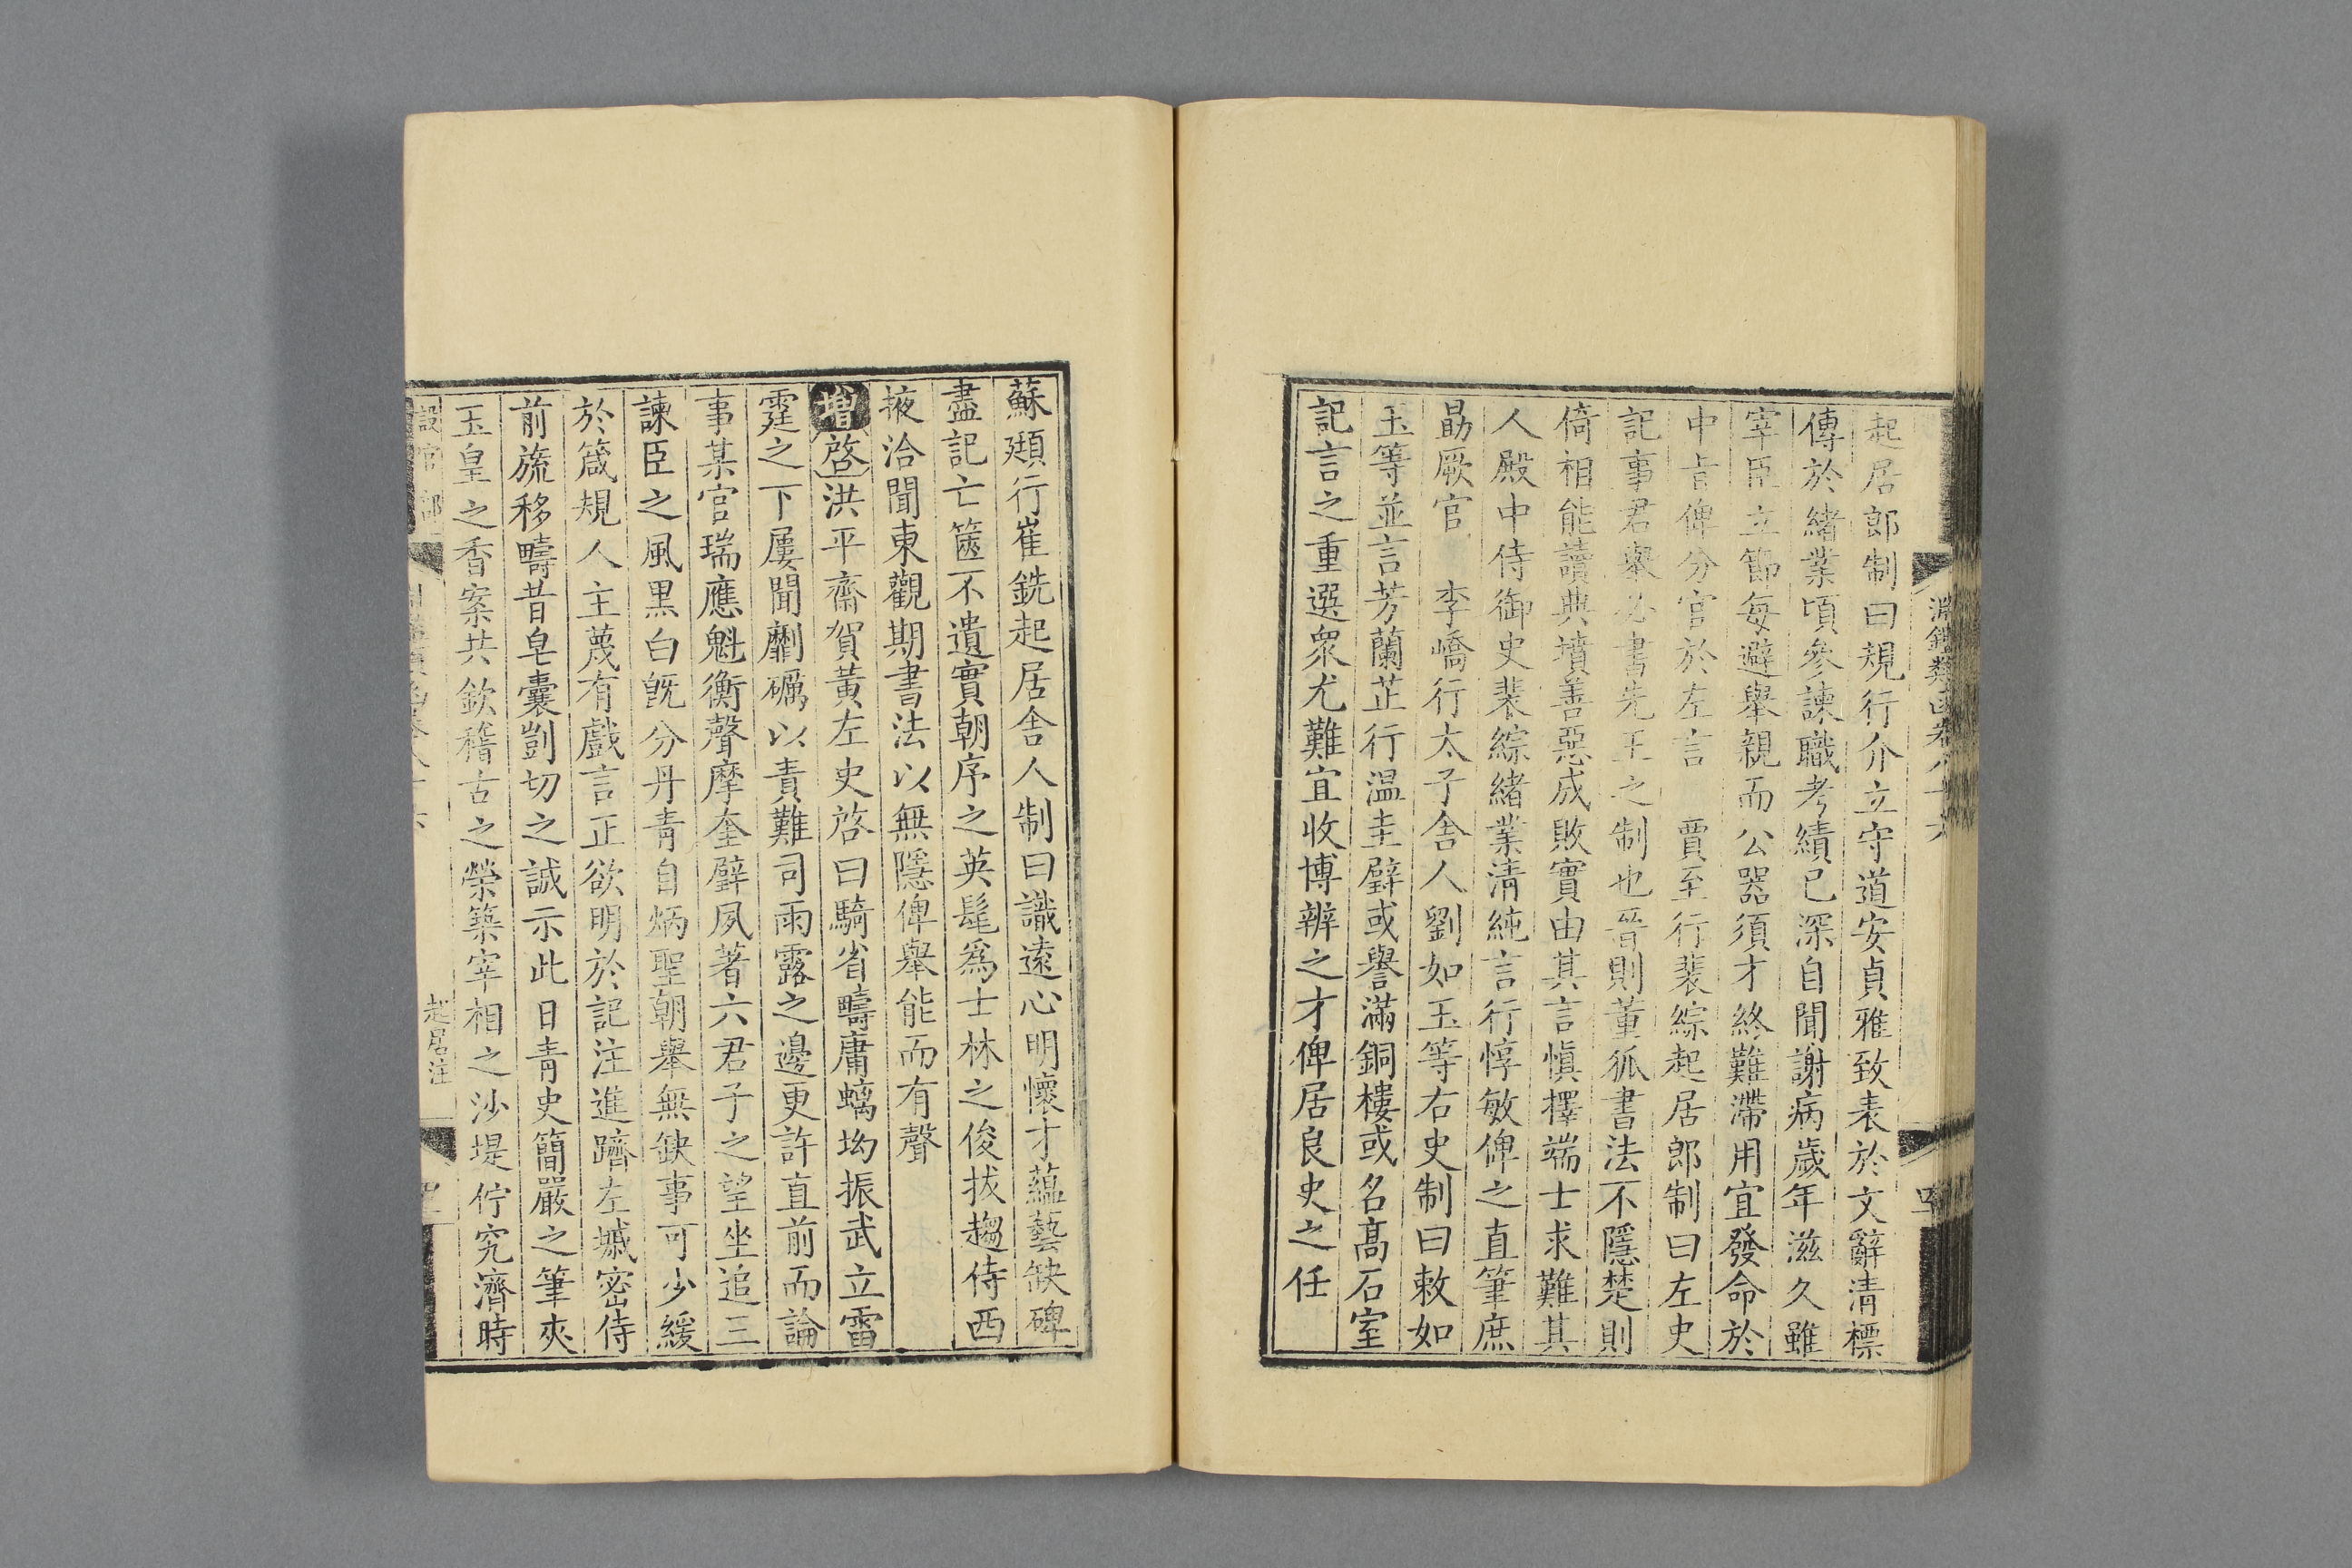 淵鑑類函卷八十六
起居郎制曰規行介立守道安貞雅致表於文辭清標
傳於緒業頃參諫職考績已深自聞謝病歲年滋久雖
宰臣立節每避舉親而公器須才終難滯用宜發命於
中㫖俾分官於左言　賈至行裴綜起居郎制曰左史
記事君舉必書先王之制也晉則董狐書法不隱楚則
倚相能讀典墳善惡成敗實由其言愼擇端士求難其
人殿中侍御史裴綜緒業清純言行惇敏俾之直筆庶
勗厥官　李嶠行太子舍人劉如玉等右史制曰敕如
玉等並言芳蘭芷行温圭璧或譽滿銅樓或名高石室
記言之重選衆尤難宜收博辨之才俾居良史之任
蘇頲行崔銑起居舍人制曰識遠心明懷才蘊藝缺碑
盡記亡篋不遺實朝序之英髦爲士林之俊拔趨侍西
掖洽聞東觀期書法以無隱俾舉能而有聲
增啓洪平齋賀黃左史啓曰騎省疇庸螭坳振武立雷
霆之下屢聞劘礪以責難司雨露之邊更許直前而論
事某官瑞應魁衡聲摩奎壁夙著六君子之望坐追三
諫臣之風黒白旣分丹青自炳聖朝舉無缺事可少緩
於箴規人主蔑有戲言正欲明於記注進躋左墄密侍
前旒移疇昔皂囊剴切之誠示此日青史簡嚴之筆夾
玉皇之香案共欽稽古之榮築宰相之沙堤佇究濟時
設官部
起居注